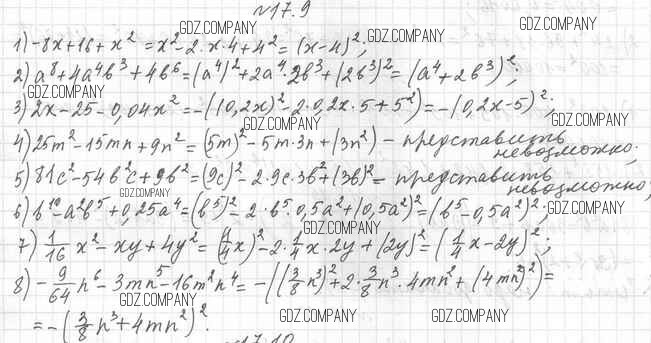 №17.9
GDZ.COMPANY
GDZ.COMPANY
1) -8x+16+x²=x²-2·x·4+4²=(x-4)²;
GDZ.COMPANY
2) a⁸+4a⁴b³+4b⁶=(a⁴)²+2a⁴·2b³+(2b³)²=(a⁴+2b³)²;
GDZ.COMPANY
3) 2x-25-0,04x²=-((0,2x)²-2·0,2x·5+5²)=-(0,2x-5)²;
GDZ.COMPANY
GDZ.COMPANY
4) 25m²-15mn+9n²=(5m)²-5m·3n+(3n)² - представить
невозможно.
5) 81c²-54b²c+9b²=(9c)²-2·9c·3b²+(3b)² - представить
невозможно;
GDZ.COMPANY
6) b¹⁰-a²b⁵+0,25a⁴=(b⁵)²-2·b⁵·0,5a²+(0,5a²)²=(b⁵-0,5a²)²;
GDZ.COMPANY
GDZ.COMPANY
7) 1/16 x²-xy+4y²=(1/4 x)²-2·1/4 x·2y+(2y)²=(1/4 x-2y)²;
8) -9/64 n⁶-3mn⁵-16m²n⁴=-((3/8 n³)²+2·3/8 n³·4mn²+(4mn²)²)=
GDZ.COMPANY
=-(3/8 n³+4mn²)².
GDZ.COMPANY
GDZ.COMPANY
17.10